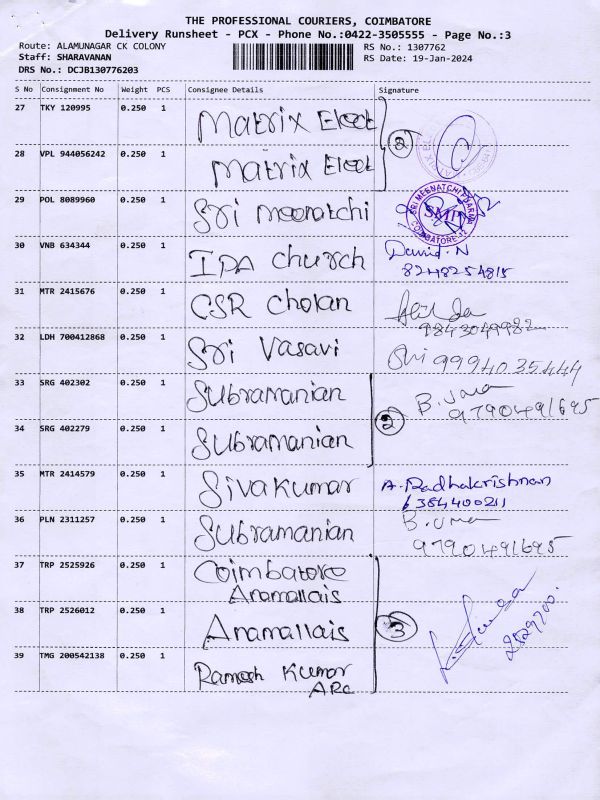 THE PROFESSIONAL COURIERS, COIMBATORE
Delivery Runsheet - PCX - Phone No.:0422-3505555 - Page No.:3
Route: ALAMUNAGAR CK COLONY
RS No.: 1307762
Staff: SHARAVANAN
RS Date: 19-Jan-2024
DRS No.: DCJB130776203
S No Consignment No Weight PCS Consignee Details Signature
27 TKY 120995 0.250 1 Matrix Elect
28 VPL 944056242 0.250 1 Matrix Elect 2
29 POL 8089960 0.250 1 Sri meenatchi SMP COIMBATORE-12
30 VNB 634344 0.250 1 IPA church David.N
8248254815
31 MTR 2415676 0.250 1 CSR Cholan
9843049982
32 LDH 700412868 0.250 1 Sri Vasavi Sri 9994035444
33 SRG 402302 0.250 1 Subramanian B.uma
9790491695
34 SRG 402279 0.250 1 Subramanian 2
35 MTR 2414579 0.250 1 Sivakumar A.Radhakrishnan
6384400211
36 PLN 2311257 0.250 1 Subramanian B.uma
9790491695
37 TRP 2525926 0.250 1 Coimbatore
Anamallais
38 TRP 2526012 0.250 1 Anamallais 3
39 TMG 200542138 0.250 1 Ramesh Kumar
ARC